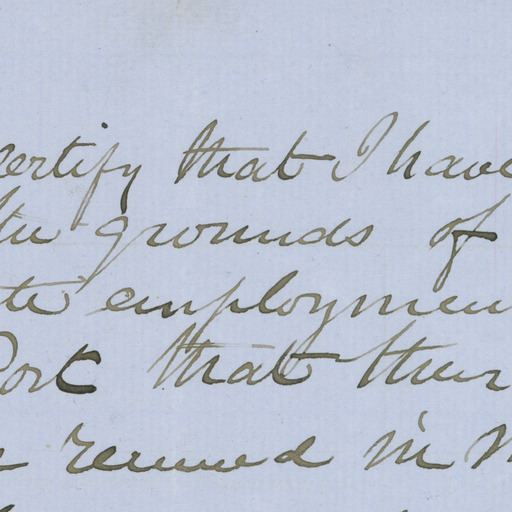 certify that I have
the grounds of
employmen
Port that their
renewed in